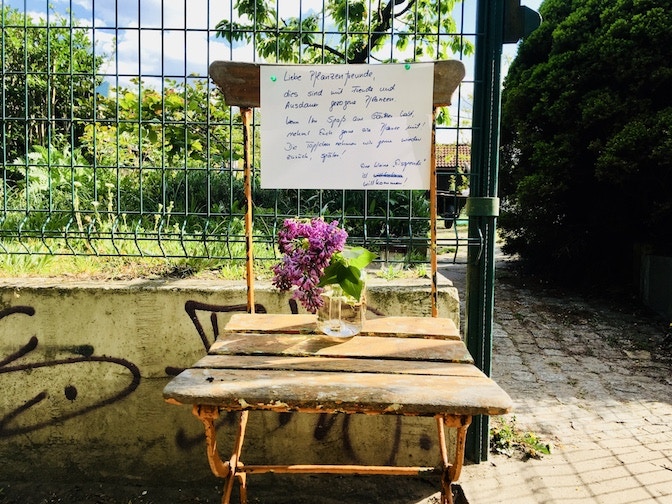 Liebe Pflanzenfreunde,
dies sind mit Freude und
Ausdauer gezogene Pflanzen.
Wenn Ihr Spaß am Garten habt,
nehmt Euch gerne eine Pflanze mit!
Die Töpfchen nehmen wir gerne wieder
zurück, später!
Eine kleine "Dispende"
ist
willkommen!